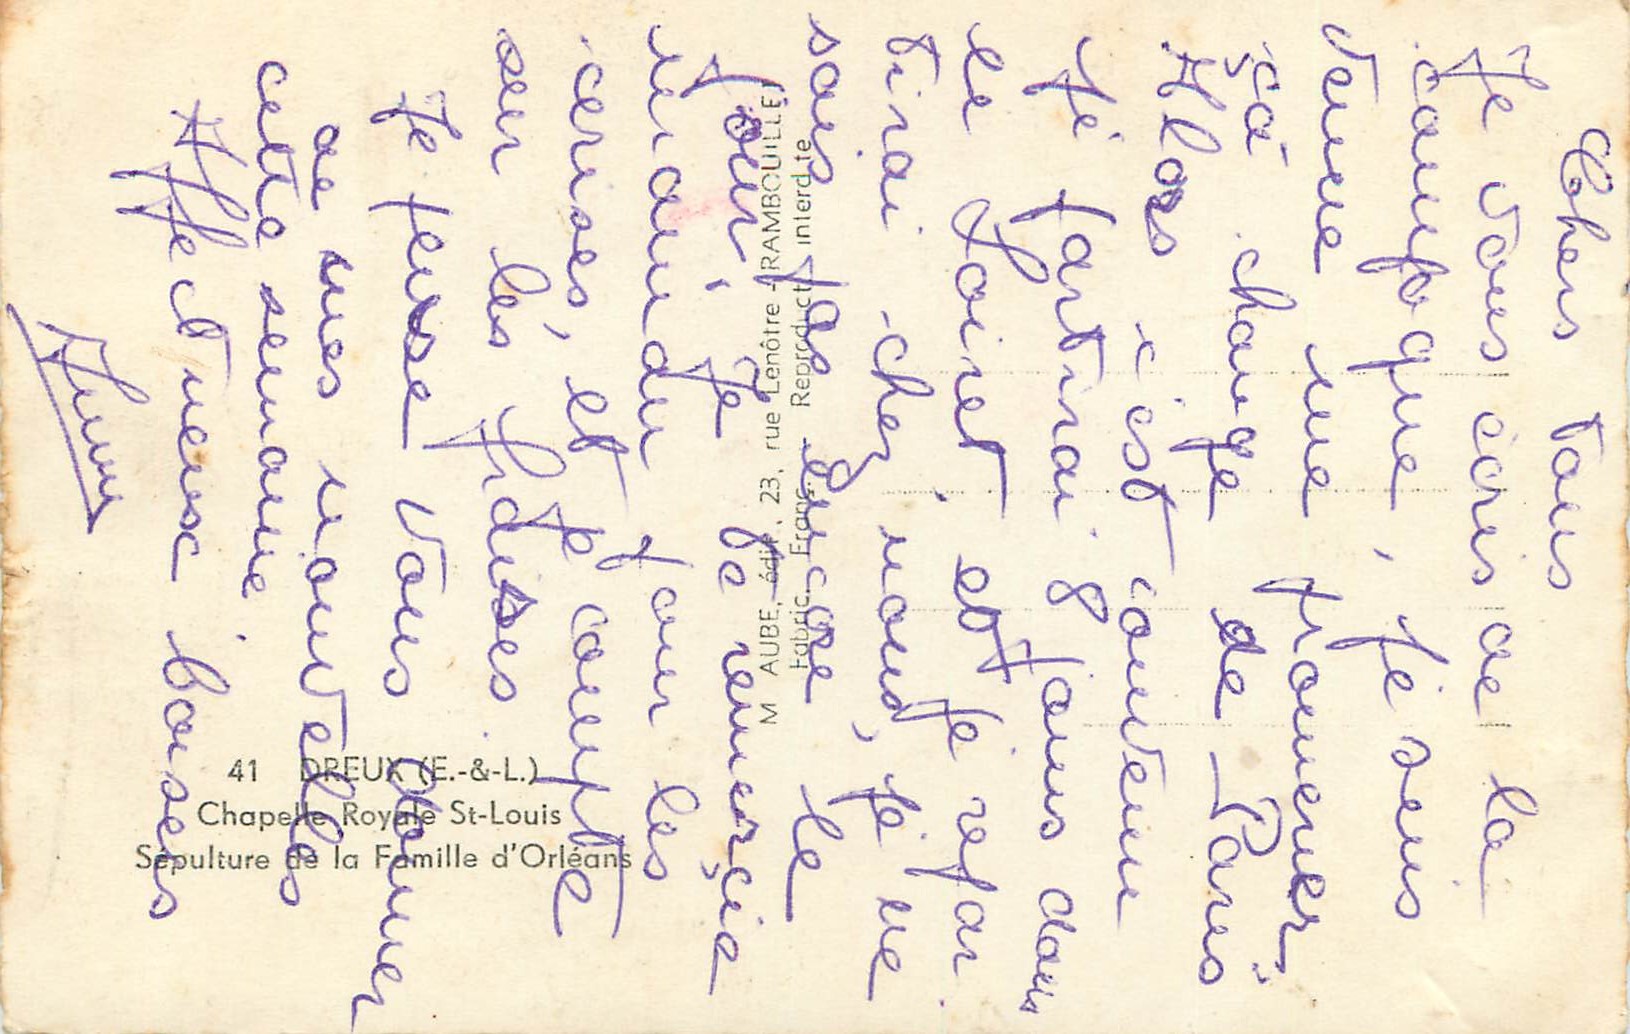 Chers tous
Je vous écris de la
campagne, je suis
venue me promener
ça change de Paris
Alors c'est convenu
je partirai 8 jours dans
le Loiret et je repar
tirai chez nous, je ne
sais pas encore le
jour. Je te remercie
maman du pour les
cerises, et je compte
sur les frdises.
Je pense vous donner
de mes nouvelles
cette semaine
Affectueux baisers
41 DREUX (E.-&-L.)
Chapelle Royale St-Louis
Sépulture de la Famille d'Orléans
M AUBE, édit., 23, rue Lenôtre - RAMBOUILLET
Fabric. Franç. - Reproduct. interdite